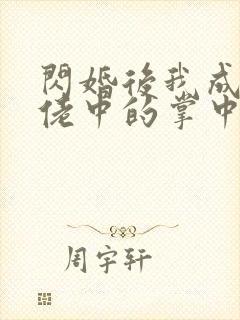 閃婚後我成
佬中的掌中
周宇轩